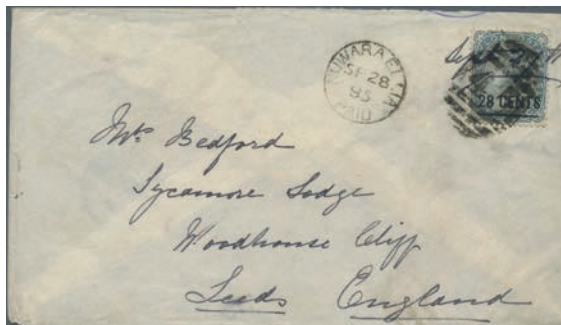 NUWARA ELIYA
SP 28
85
PAID
28 CENTS
Mrs Bedford
Sycamore Lodge
Woodhouse Cliff
Leeds England